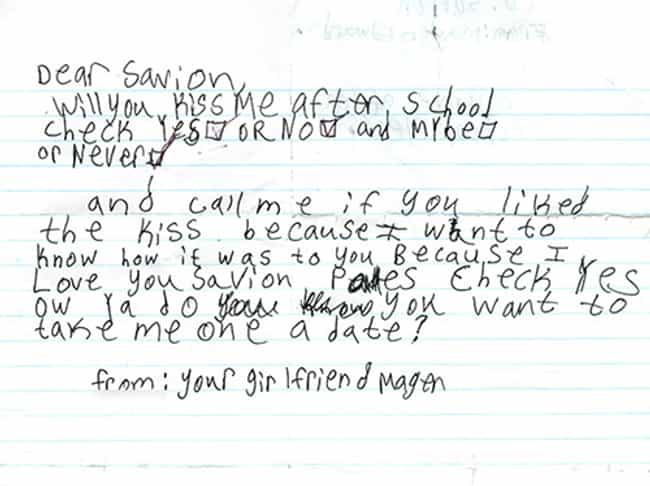 Dear Savion,
Will you Kiss Me after school
Check Yes☑ OR NO☑ and Mybe☐
or Never☑
and call me if you liked
the Kiss because I want to
Know how it was to you Because I
Love you Savion Check Yes
ow ya do you want to
take me one a date?
from: your girlfriend Magen